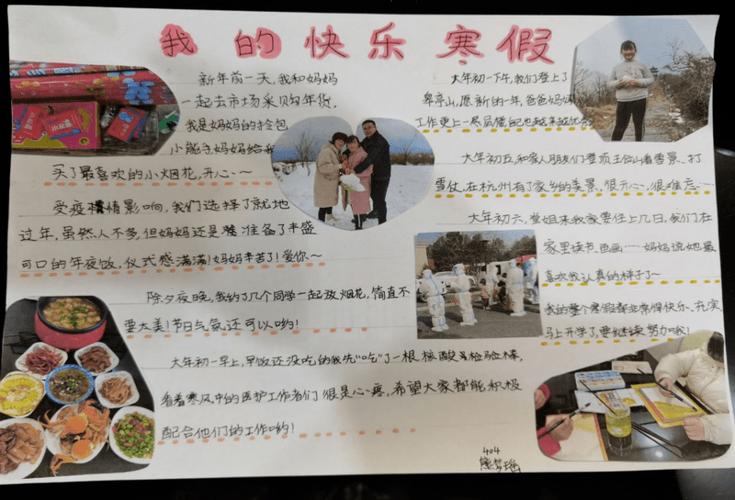 我的快乐寒假
新年前一天,我和妈妈
一起去市场采购年货,
我是妈妈的拎包
小能手妈妈给我
买了最喜欢的小烟花,开心~~
受疫情影响,我们选择了就地
过年,虽然人不多,但妈妈还是准备了丰盛
可口的年夜饭,仪式感满满!妈妈辛苦了!爱你~
除夕夜晚,我约了几个同学一起放烟花,简直不
要太美!节日气氛还可以哟!
大年初一早上,早饭还没吃的我先"吃"了一根核酸检验棒,
看着寒风中的医护工作者们很是心疼,希望大家都能积极
配合他们的工作哟!
大年初一下午,我们登上了
皋亭山,愿新的一年,爸爸妈妈
工作更上一层后
自己也越来越优
大年初五,和家人朋友们登顶王位山看雪景、打
雪仗,在杭州有了家乡的美景,很开心,很难忘
大年初六,表姐来我家要住上几日,我们在
家里读书、画画……妈妈说她最
喜欢我认真的样子了~
我的整个寒假都业席得快乐、充实
马上开学了,要继续努力哦!
404